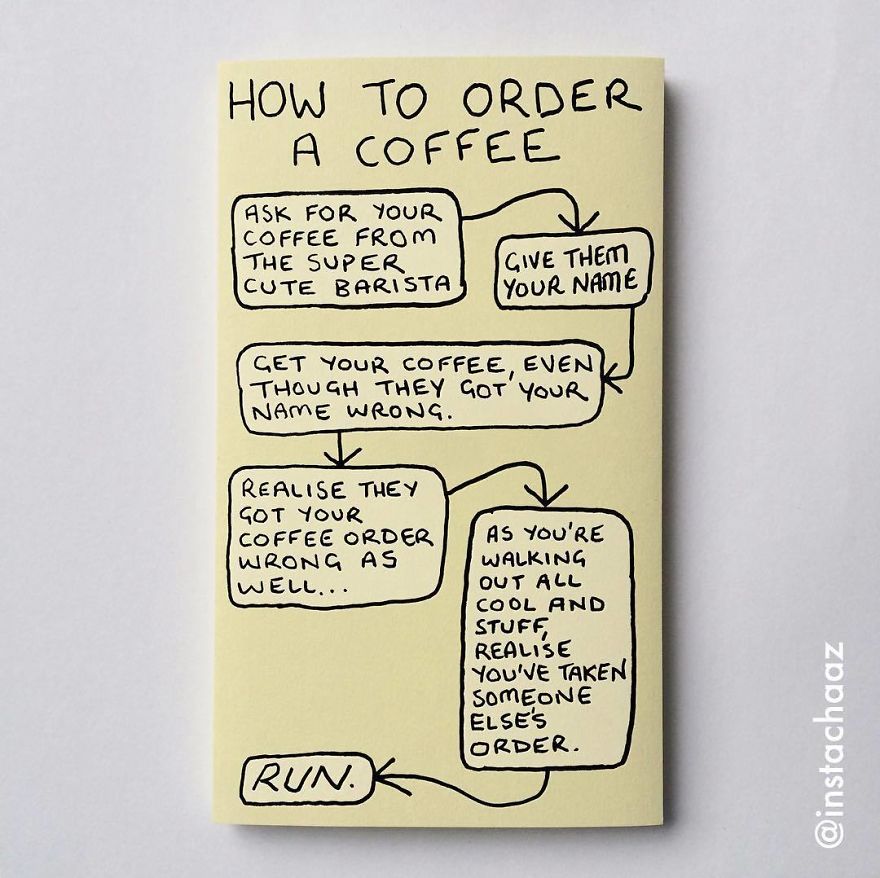 HOW TO ORDER
A COFFEE
ASK FOR YOUR
COFFEE FROM
THE SUPER
CUTE BARISTA
GIVE THEM
YOUR NAME
GET YOUR COFFEE, EVEN
THOUGH THEY GOT YOUR
NAME WRONG.
REALISE THEY
GOT YOUR
COFFEE ORDER
WRONG AS
WELL...
AS YOU'RE
WALKING
OUT ALL
COOL AND
STUFF,
REALISE
YOU'VE TAKEN
SOMEONE
ELSE'S
ORDER.
RUN.
@instachaaz